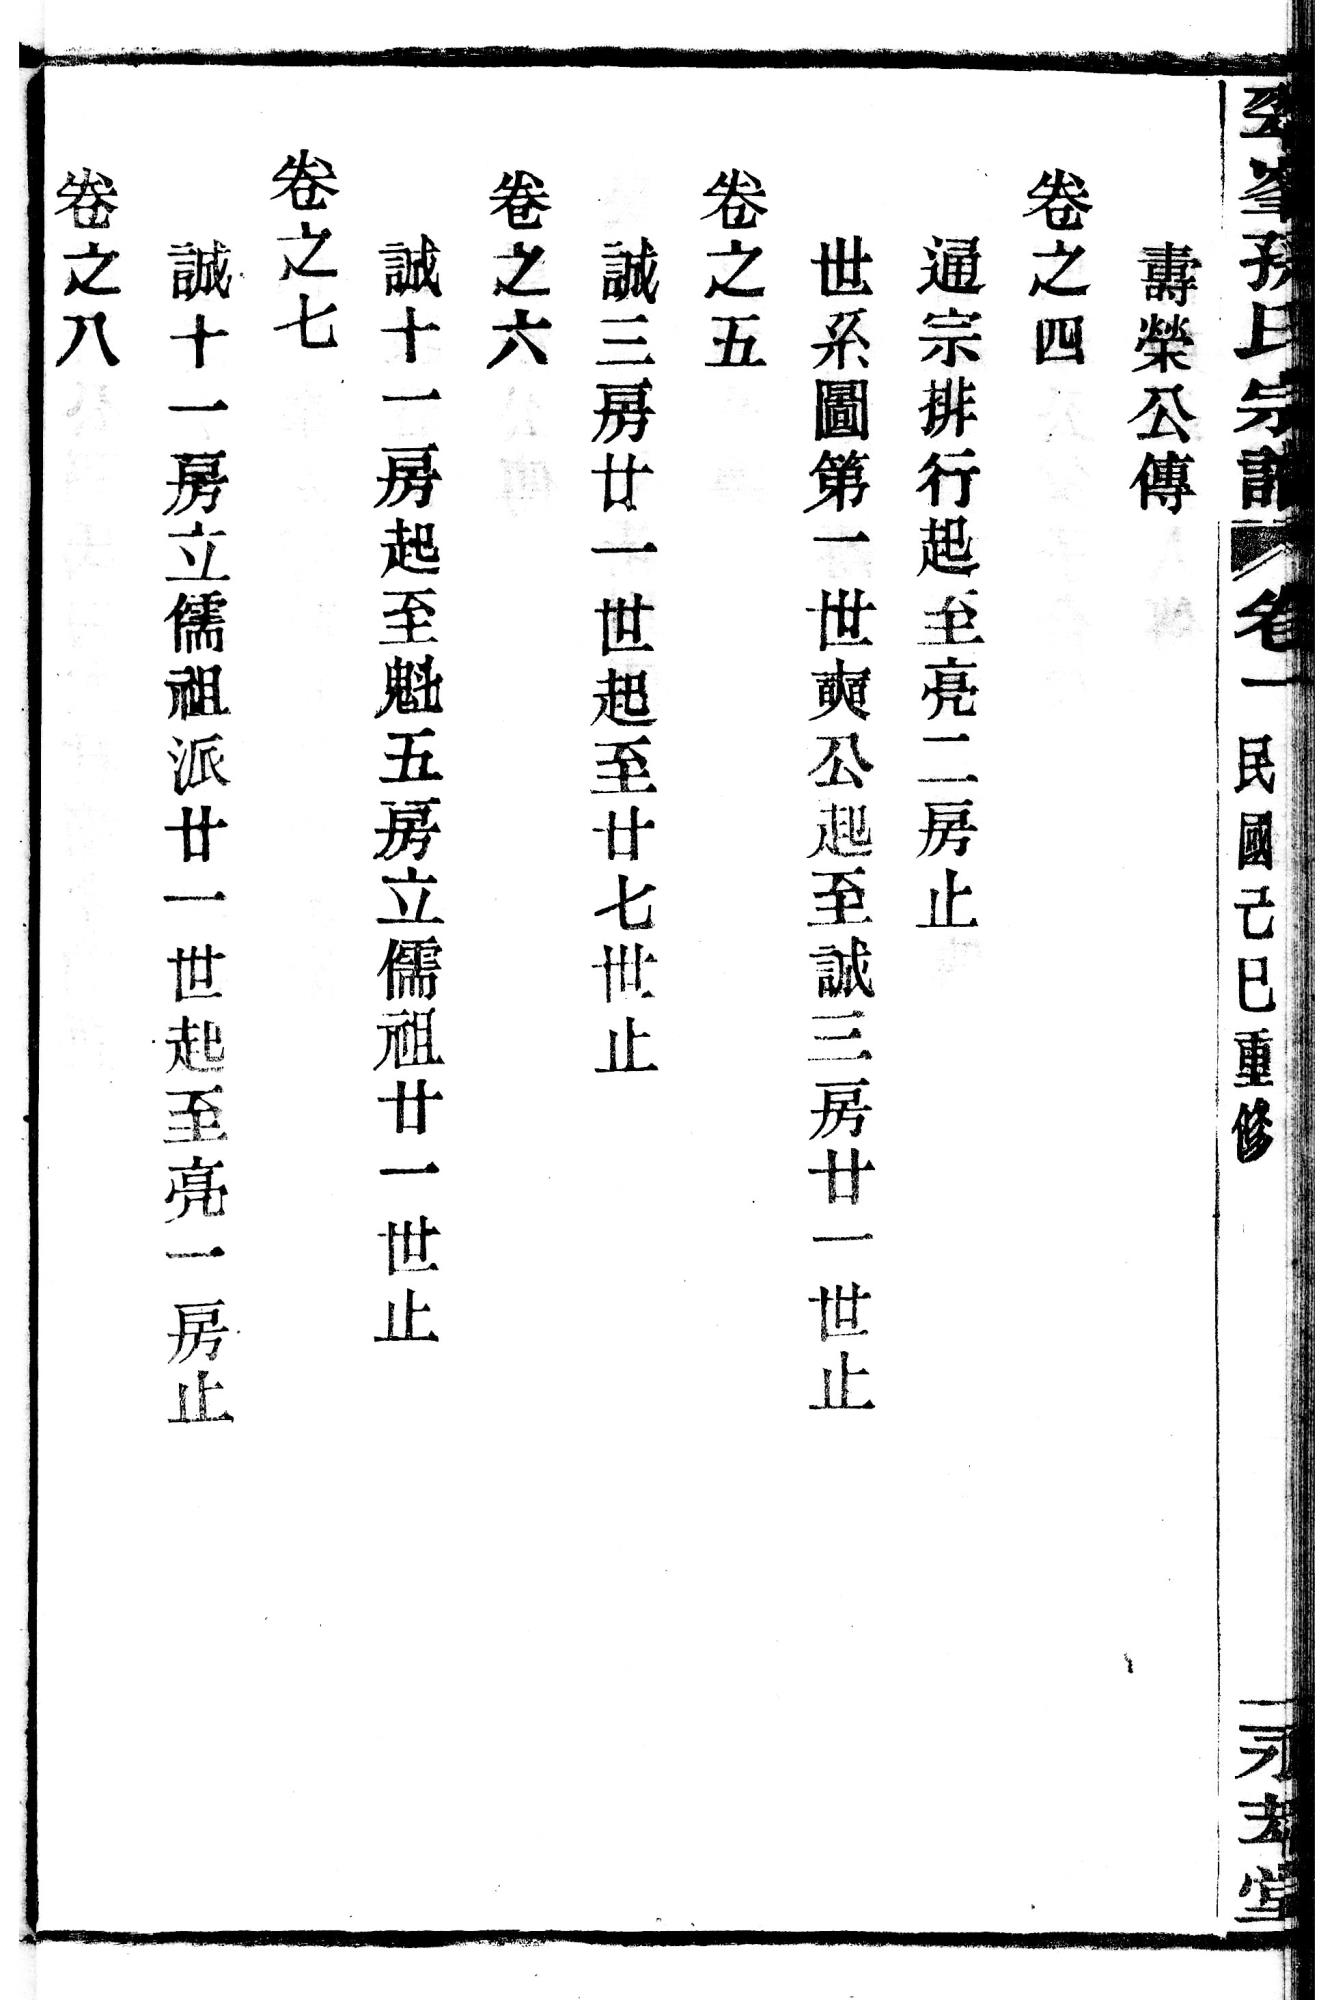 峯孫氏宗譜 卷一 民國己巳重修 一 永 堂
壽榮公傳
卷之四
通宗排行起至亮二房止
世系圖第一世奭公起至誠三房廿一世止
卷之五
誠三房廿一世起至廿七世止
卷之六
誠十一房起至魁五房立儒祖廿一世止
卷之七
誠十一房立儒祖派廿一世起至亮一房止
卷之八